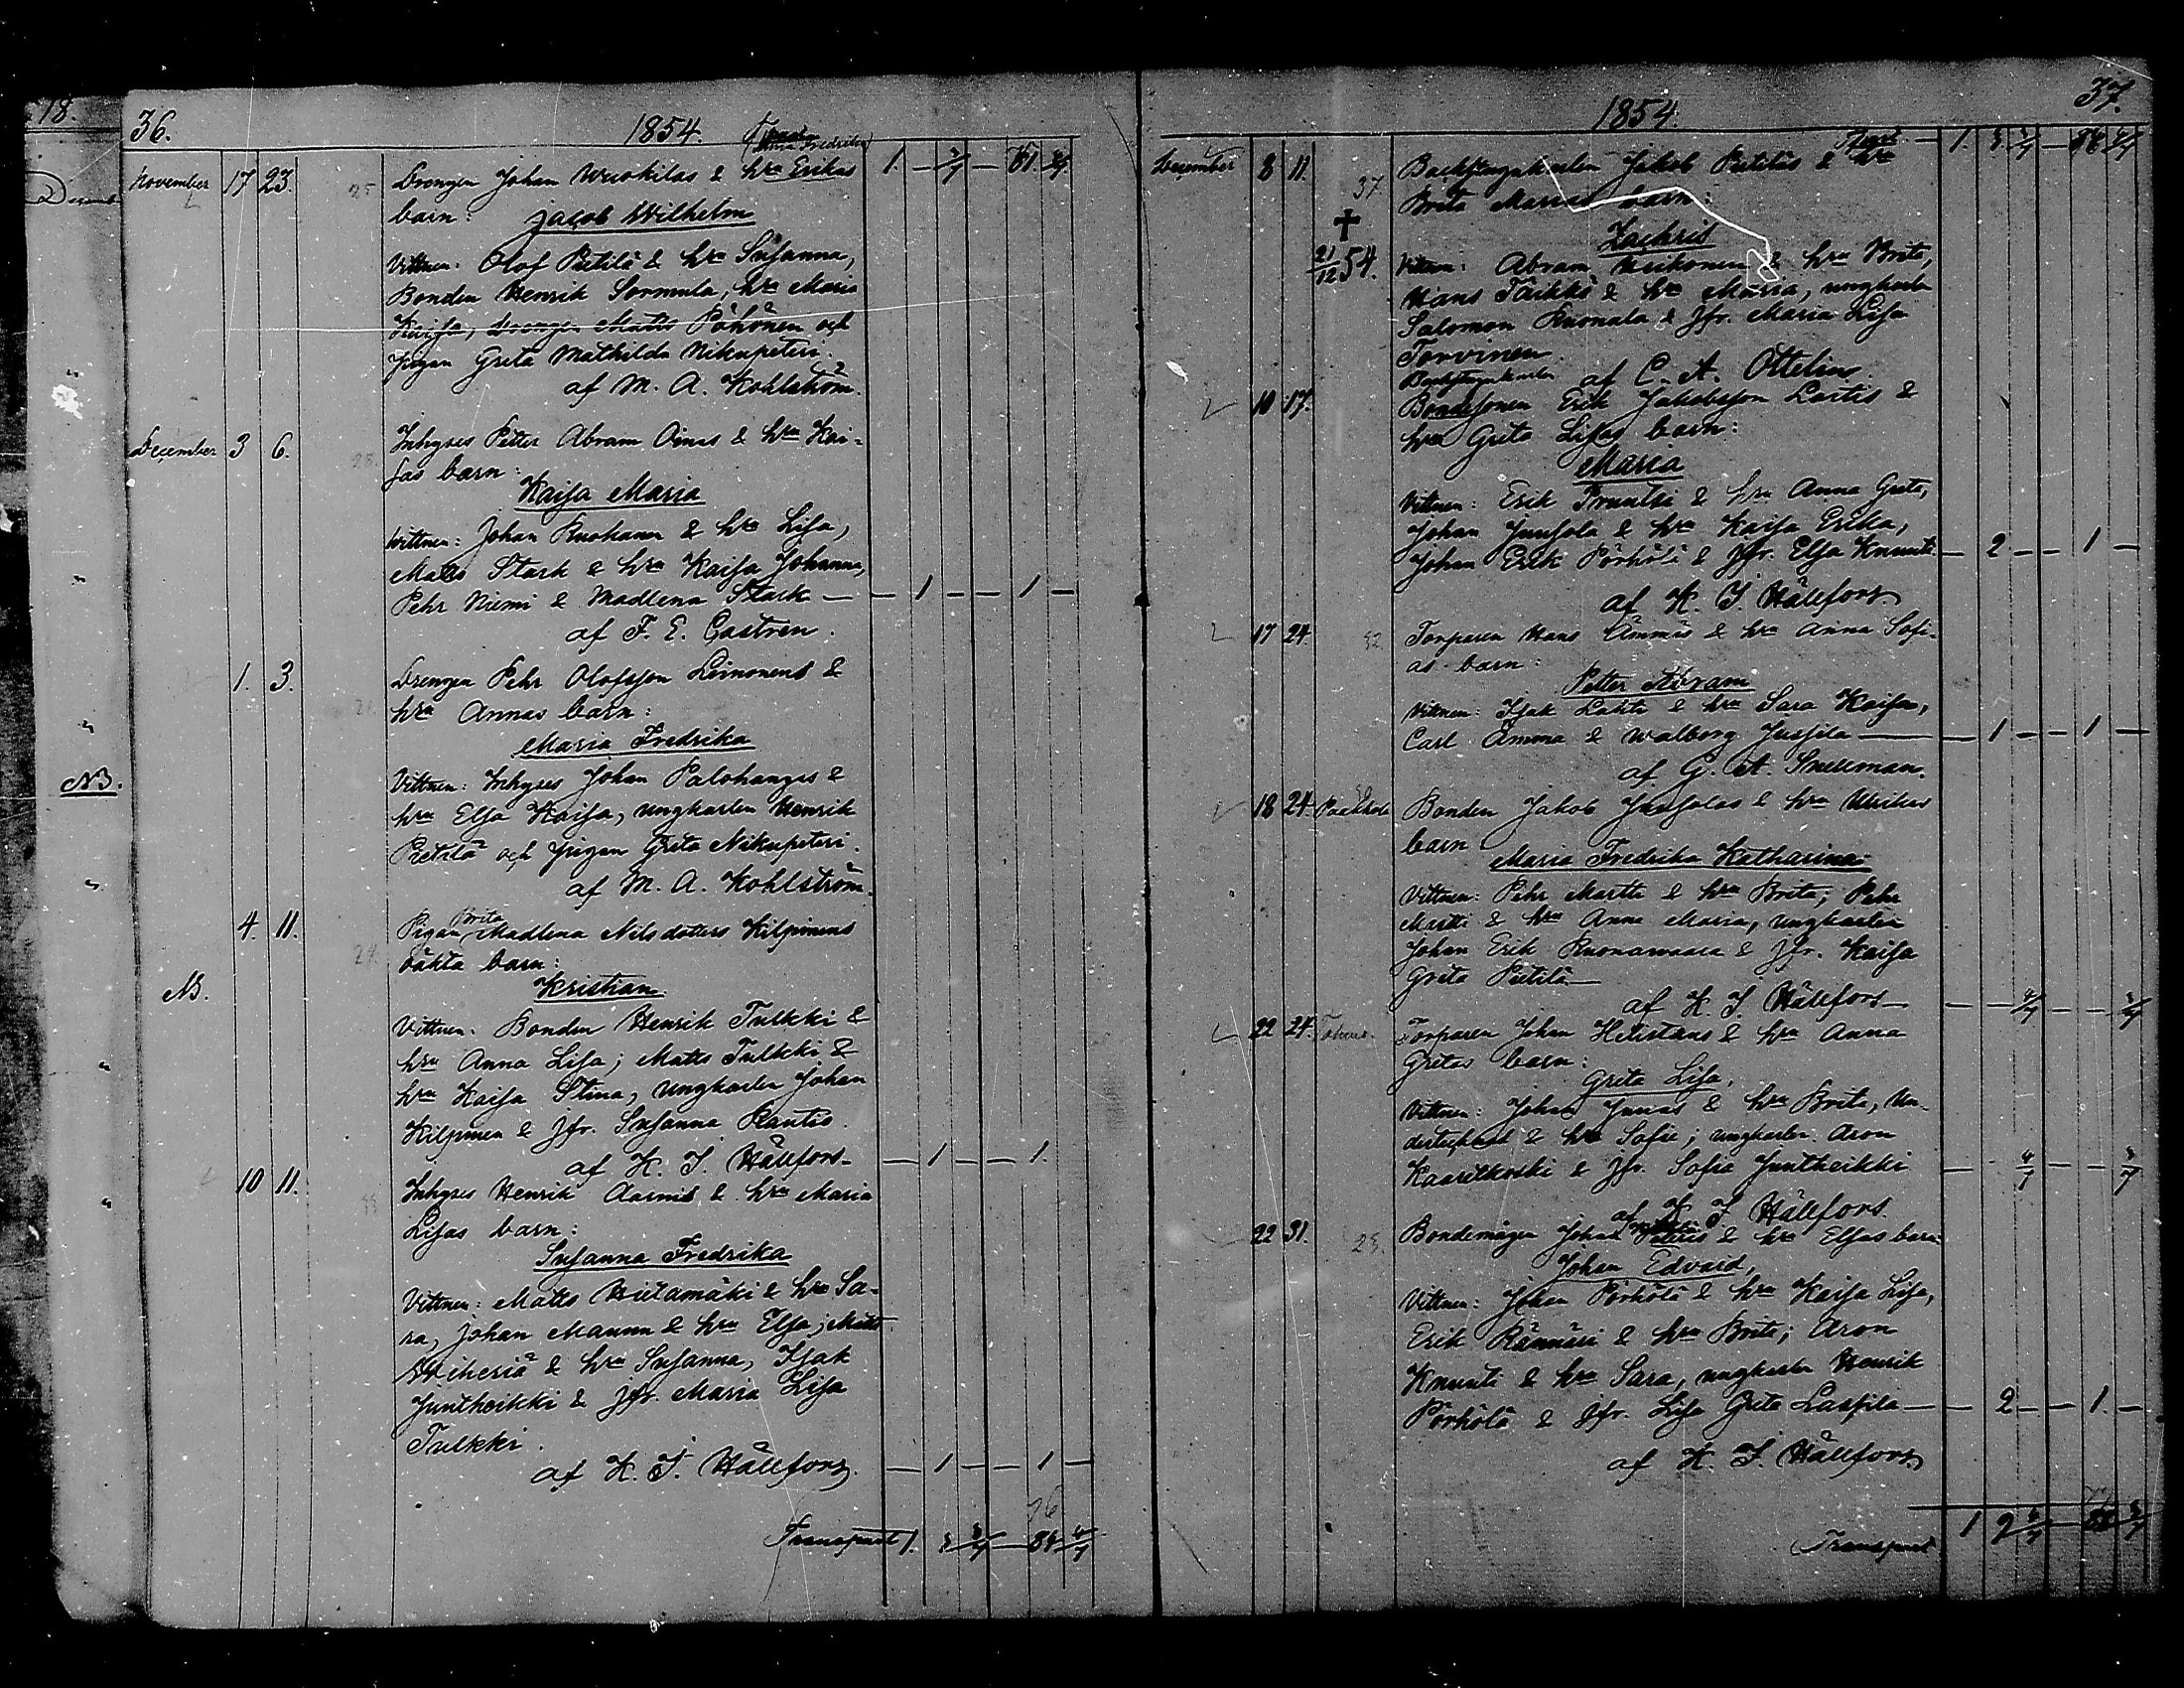 18.
36.
1854.
November 17 23. 25 Drengen Johan Wuokilas & hru Erikas 1. — — 81.
barn: Jacob Wilhelm
Vittnen: Olof Pietilä & hru Susanna,
Bonden Henrik Sormula, hru Maria
Kaisa, Drengen Matts Pöhönen och
pigan Greta Mathilda Nikupeteri.
af M. A. Kohlström.
December 3 6. 28. Inhyses Petter Abram Oinas & hru Kai-
sas barn:
Kaisa Maria
Wittnen: Johan Ruohanen & hru Lisa,
Matts Stark & hru Kaisa Johanna,
Pehr Niemi & Madlena Stark — — 1 — — 1 —
af F. E. Castren.
1. 3. Drengen Pehr Olofsson Leinonens &
hru Annas barn:
Maria Fredrika
Vittnen: Inhyses Johan Palohanges &
hru Elsa Kaisa, ungkarlen Henrik
Pietilä och pigan Greta Nikupeteri.
af M. A. Kohlström.
4. 11. 24. Pigan Brita Madlena Nilsdotters Kilpinens
oäkta barn:
NB.
Kristian.
Vittnen: Bonden Henrik Tulkki &
hru Anna Lisa; Matts Tulkki &
hru Kaisa Stina, ungkarlen Johan
Kilpinen & Jfr. Susanna Rantio.
af K. J. Hällfors — 1 — — 1.
10 11. Inhyses Henrik Aarnis & hru Maria
Lisas barn:
Susanna Fredrika
Vittnen: Matts Hietamäki & hru Sa-
ra, Johan Maunu & hru Elsa; Matts
Wiheriä & hru Susanna, Isak
Juntheikki & Jfr. Maria Lisa
Tulkki.
af K. J. Hällfors. — 1 — — 1 —
76
Transport 1.
NB.
37.
1854.
December 8 11. 37. Backstugukarlen Jakob Pietiläs & hru
Brita Marias barn:
†
21/12 54.
Zachris
Vittnen: Abram & hru Brita,
Hans Täikkö & hru Maria, ungkarlen
Salomon Kuonala & Jfr. Maria Lisa
Torvinen.
af C. A. Ottelin.
Backstugukarlen
10 17. Bondesonen Erik Jakobsson Lartis &
hru Greta Lisas barn:
Maria
Vittnen: Erik Pruntsi & hru Anna Greta,
Johan Juusola & hru Kaisa Erika,
Johan Erik Pörhölä & Jfr. Elsa Knuuti — 2 — — 1 —
af K. J. Hällfors.
17 24. 32 Torparen Hans Ämmäs & hru Anna Sofi-
as barn:
Petter Abram
Vittnen: Isak Lahti & hru Sara Kaisa,
Carl Ämmä & Walborg Jussila — — 1 — — 1 —
af G. A. Snellman.
18 24. Paakkola Bonden Jakob Juusolas & hru Ulrikas
barn
Maria Fredrika Katharina
Vittnen: Pehr Martti & hru Brita; Pehr
Martti & hru Anna Maria, ungkarlen
Johan Erik Kuonanvaara & Jfr. Kaisa
Greta Pietilä —
af K. J. Hällfors —
22 24. Torparen Johan Hetistans & hru Anna
Gretas barn:
Greta Lisa.
Vittnen: Johan Junas & hru Brita,
& hru Sofie; ungkarlen Aron
Kaarilkoski & Jfr. Sofia Juntheikki
af K. J. Hällfors.
22 31. 25. Bondemågen Johan & hru Elsas barn
Johan Edvard,
Vittnen: Johan Pörhölä & hru Kaisa Lisa,
Erik Rännäri & hru Brita; Aron
Knuuti & hru Sara, ungkarlen Henrik
Pörhölä & Jfr. Lisa Greta Lassila — — 2 — — 1. —
af K. J. Hällfors
Transport 1 2